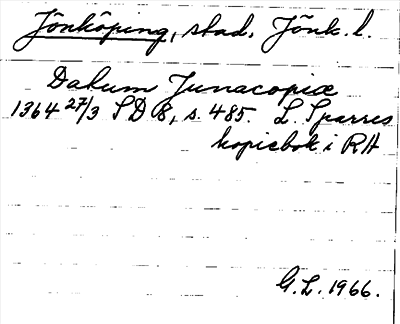 Jönköping, stad. Jönk. l.
Datum Junacopiæ
1364 27/3 SD 8, s. 485. L. Sparres
kopiebok i RA
G.L. 1966.